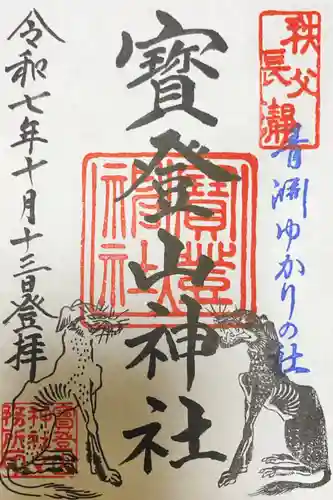 秩父
長瀞
青淵ゆかりの社
寳登山神社
寳登
山神
社
令和七年十月十三日登拝
寳登山
神社社
務所印